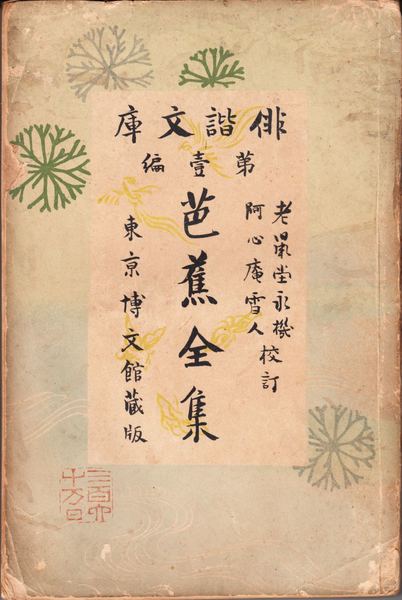 俳諧文庫
第壹編
老鼠堂永機
阿心庵雪人
校訂
芭蕉全集
東京博文館蔵版